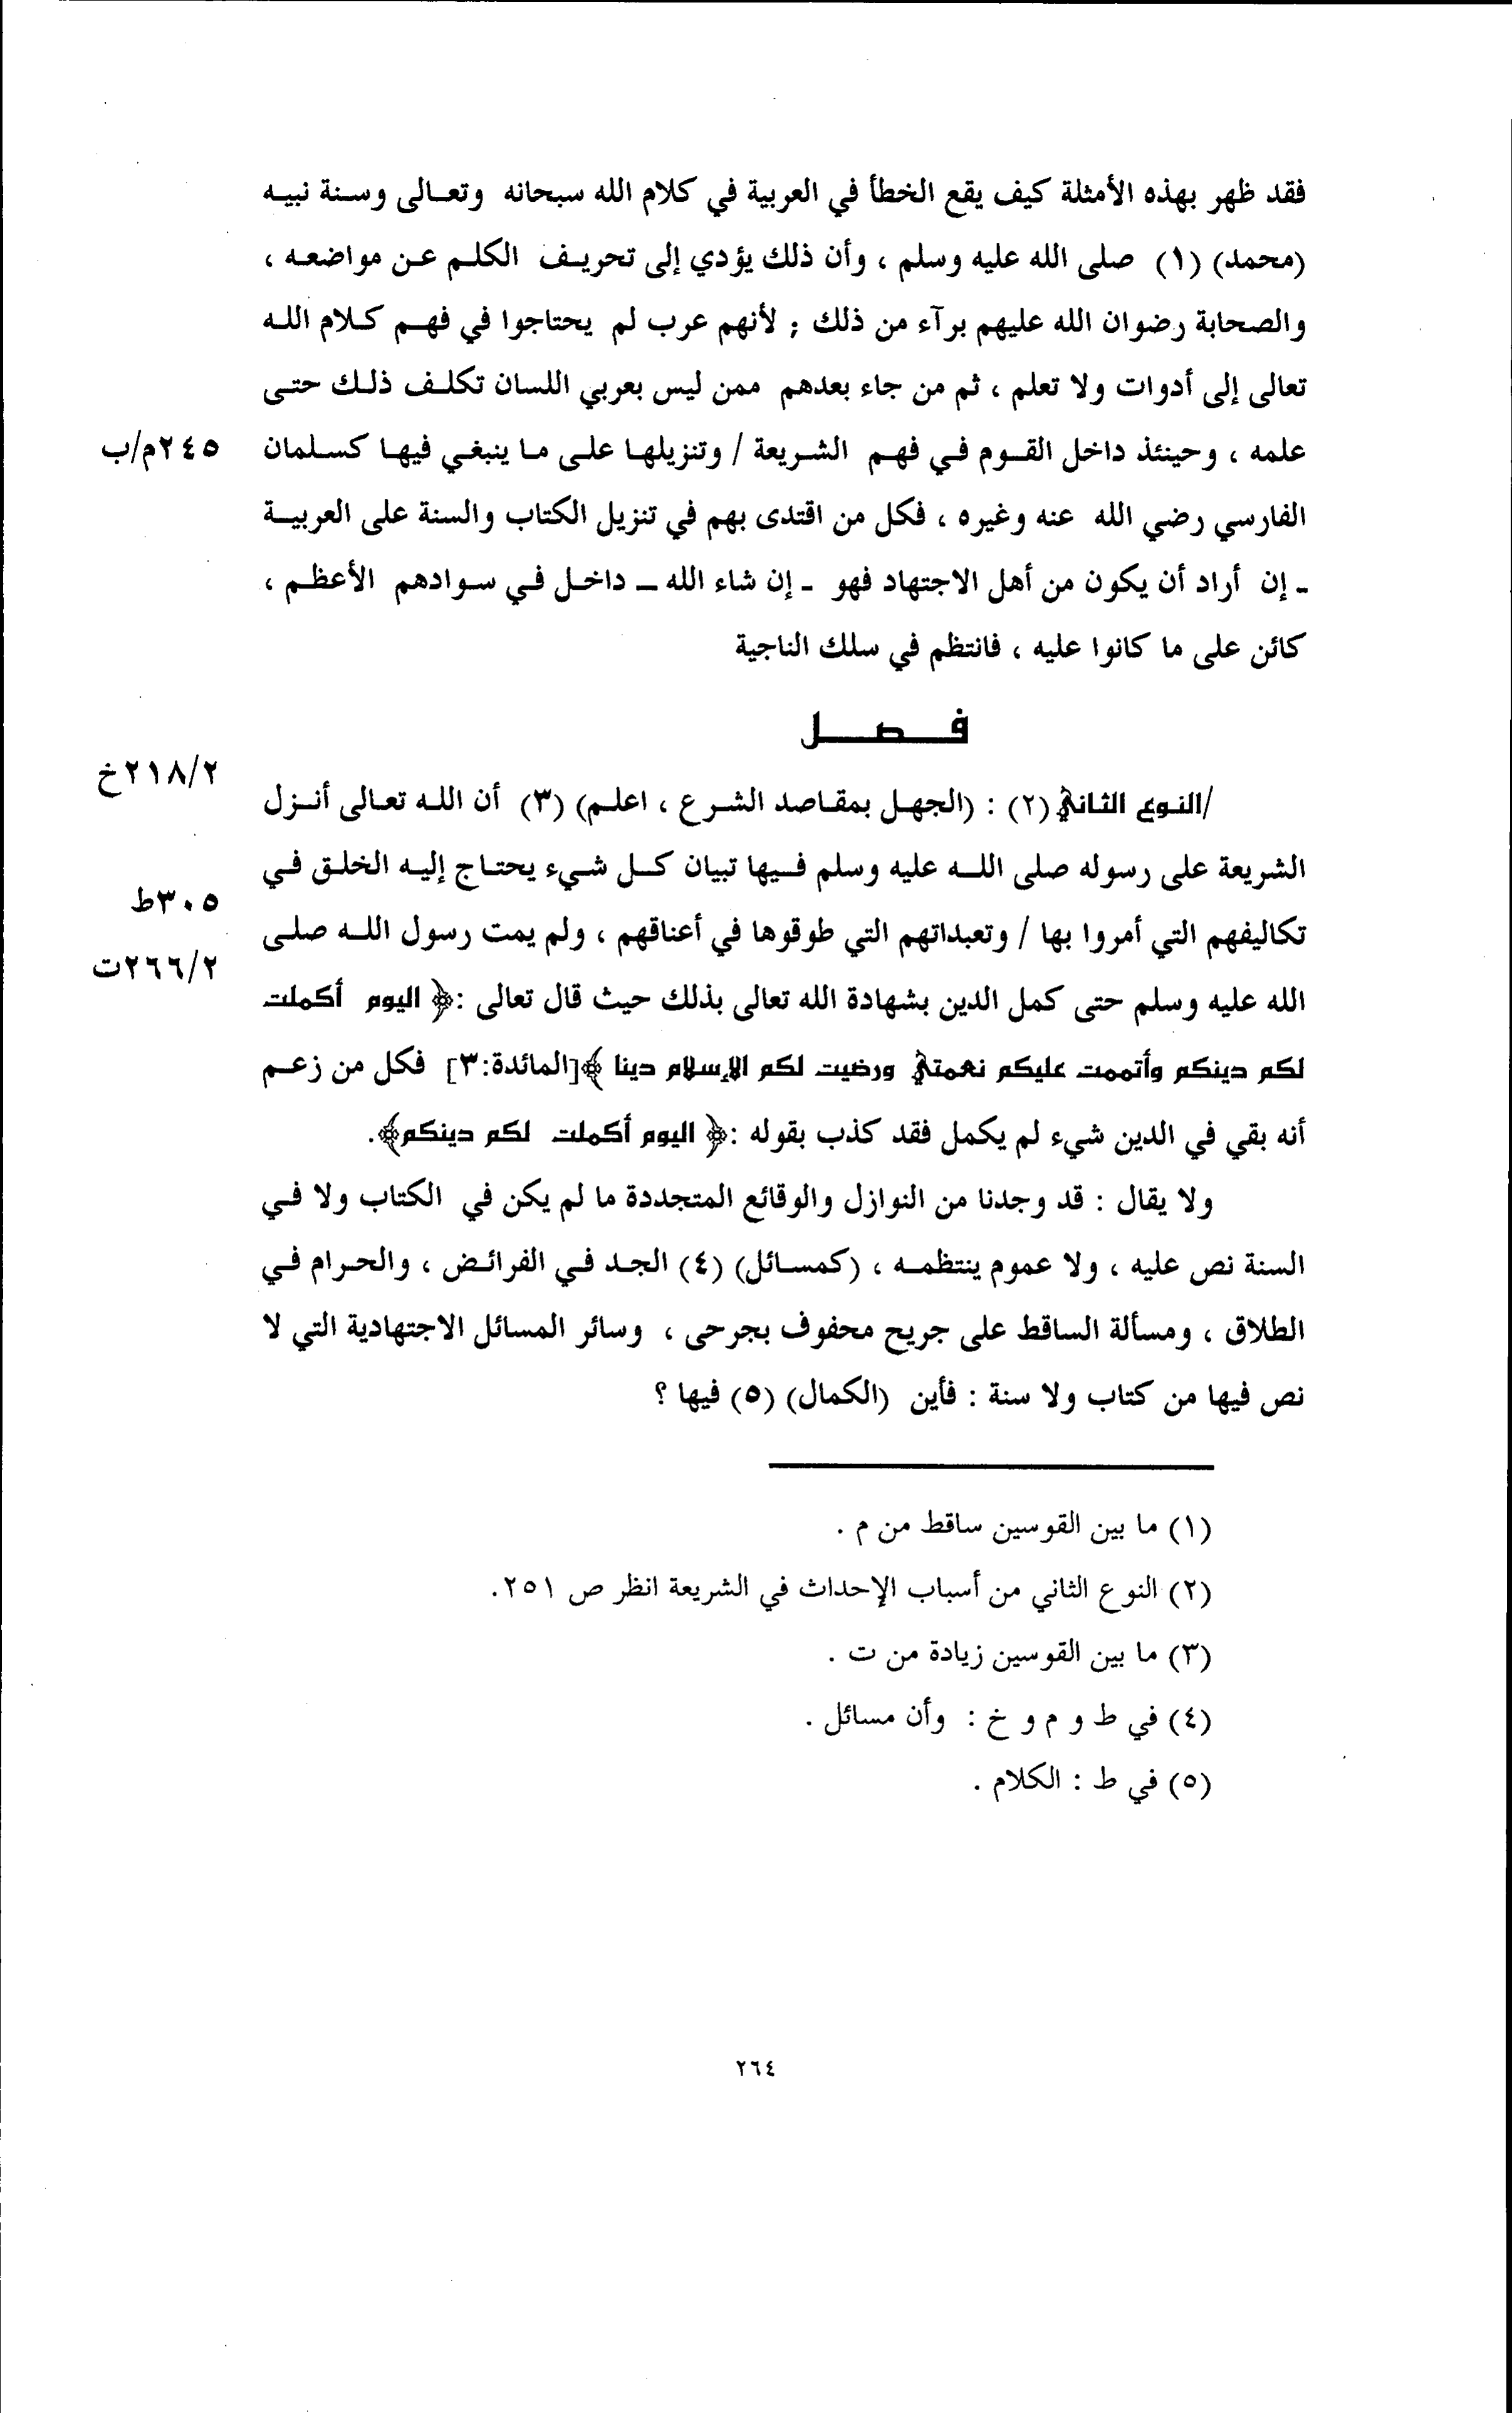 فقد ظهر بهذه الأمثلة كيف يقع الخطأ في العربية في كلام الله سبحانه وتعالى وسنة نبيه
(محمد) (١) صلى الله عليه وسلم ، وأن ذلك يؤدي إلى تحريف الكلم عن مواضعه ،
والصحابة رضوان الله عليهم برآء من ذلك ; لأنهم عرب لم يحتاجوا في فهم كلام الله
تعالى إلى أدوات ولا تعلم ، ثم من جاء بعدهم ممن ليس بعربي اللسان تكلف ذلك حتى
علمه ، وحينئذ داخل القوم في فهم الشريعة / وتنزيلها على ما ينبغي فيها كسلمان ٢٤٥م/ب
الفارسي رضي الله عنه وغيره ، فكل من اقتدى بهم في تنزيل الكتاب والسنة على العربية
- إن أراد أن يكون من أهل الاجتهاد فهو - إن شاء الله – داخل في سوادهم الأعظم ،
كائن على ما كانوا عليه ، فانتظم في سلك الناجية
فصل
٢١٨/٢خ
/النوع الثاني (٢) : (الجهل بمقاصد الشرع ، اعلم) (٣) أن الله تعالى أنزل
الشريعة على رسوله صلى الله عليه وسلم فيها تبيان كل شيء يحتاج إليه الخلق في
٣٠٥ط
تكاليفهم التي أمروا بها / وتعبداتهم التي طوقوها في أعناقهم ، ولم يمت رسول الله صلى
٢٦٦/٢ت
الله عليه وسلم حتى كمل الدين بشهادة الله تعالى بذلك حيث قال تعالى :﴿ اليوم أكملت
لكم دينكم وأتممت عليكم نعمتي ورضيت لكم الإسلام دينا ﴾[المائدة:٣] فكل من زعم
أنه بقي في الدين شيء لم يكمل فقد كذب بقوله :﴿ اليوم أكملت لكم دينكم﴾.
ولا يقال : قد وجدنا من النوازل والوقائع المتجددة ما لم يكن في الكتاب ولا في
السنة نص عليه ، ولا عموم ينتظمه ، (كمسائل) (٤) الجد في الفرائض ، والحرام في
الطلاق ، ومسألة الساقط على جريح محفوف بجرحى ، وسائر المسائل الاجتهادية التي لا
نص فيها من كتاب ولا سنة : فأين (الكمال) (٥) فيها ؟
(١) ما بين القوسين ساقط من م .
(٢) النوع الثاني من أسباب الإحداث في الشريعة انظر ص ٢٥١.
(٣) ما بين القوسين زيادة من ت .
(٤) في ط و م و خ : وأن مسائل .
(٥) في ط : الكلام .
٢٦٤